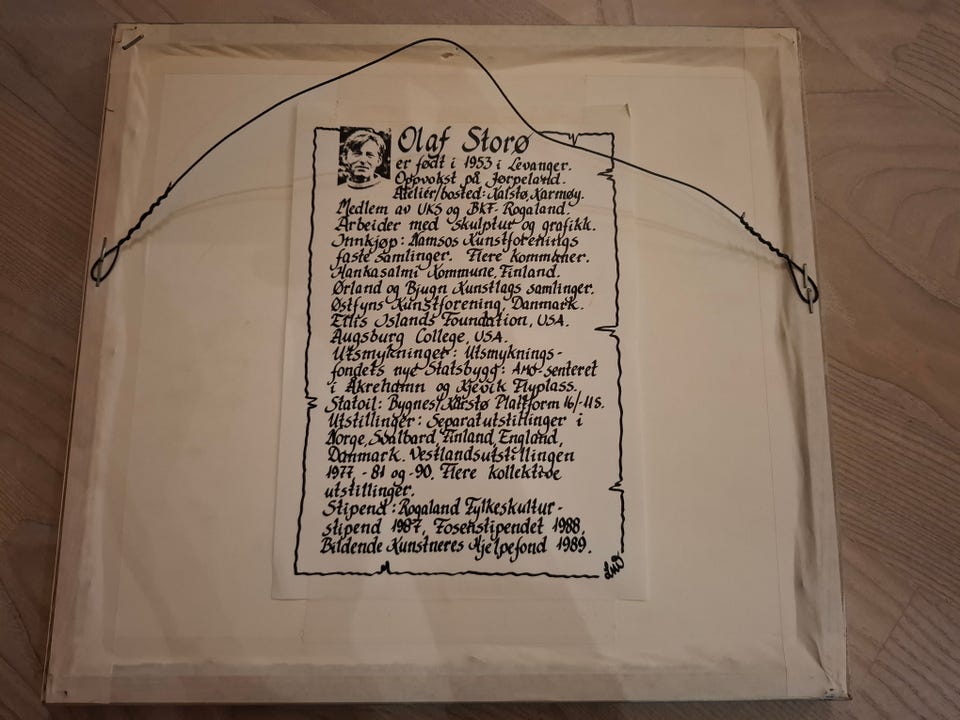 Olaf Storø
er født i 1953 i Levanger.
Oppvokst på Jørpeland.
Ateliér/bosted: Kalstø, Karmøy.
Medlem av UKS og BKF-Rogaland.
Arbeider med skulptur og grafikk.
Innkjøp: Namsos Kunstforenings
faste samlinger. Flere kommuner.
Hankasalmi Kommune, Finland.
Ørland og Bjugn Kunstlags samlinger.
Østfyns Kunstforening, Danmark.
Ellis Islands Foundation, USA.
Augsburg College, USA.
Utsmykninger: Utsmyknings-
fondets nye Statsbygg: AMO-senteret
i Åkrehamn og Kjevik Flyplass.
Statoil: Bygnes/Kårstø Plattform 16/-11S.
Utstillinger: Separatutstillinger i
Norge, Svalbard, Finland, England,
Danmark. Vestlandsutstillingen
1977, -81 og -90. Flere kollektive
utstillinger.
Stipend: Rogaland Fylkeskultur-
stipend 1987, Fosenstipendet 1988,
Bildende Kunstneres Hjelpefond 1989.